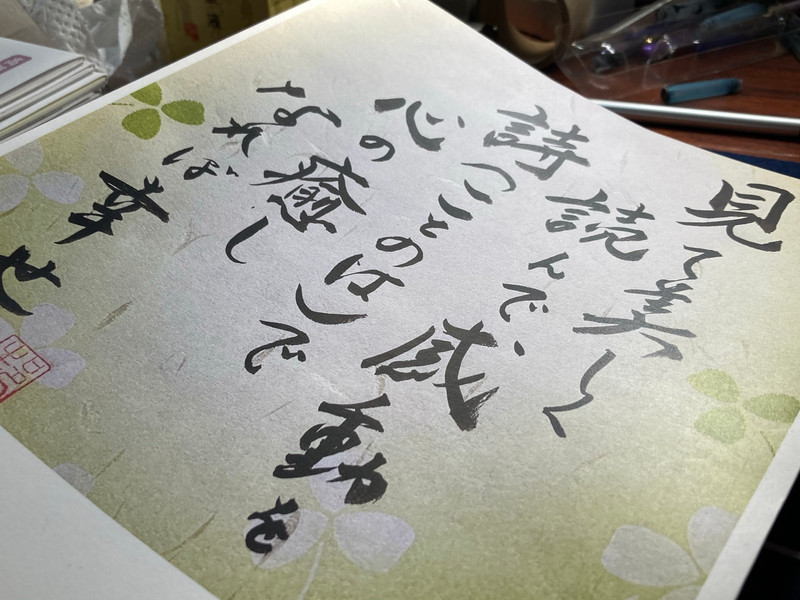 見て美しく
読んで感動を
詩（ことのは）で
心の癒し
なれば幸せ